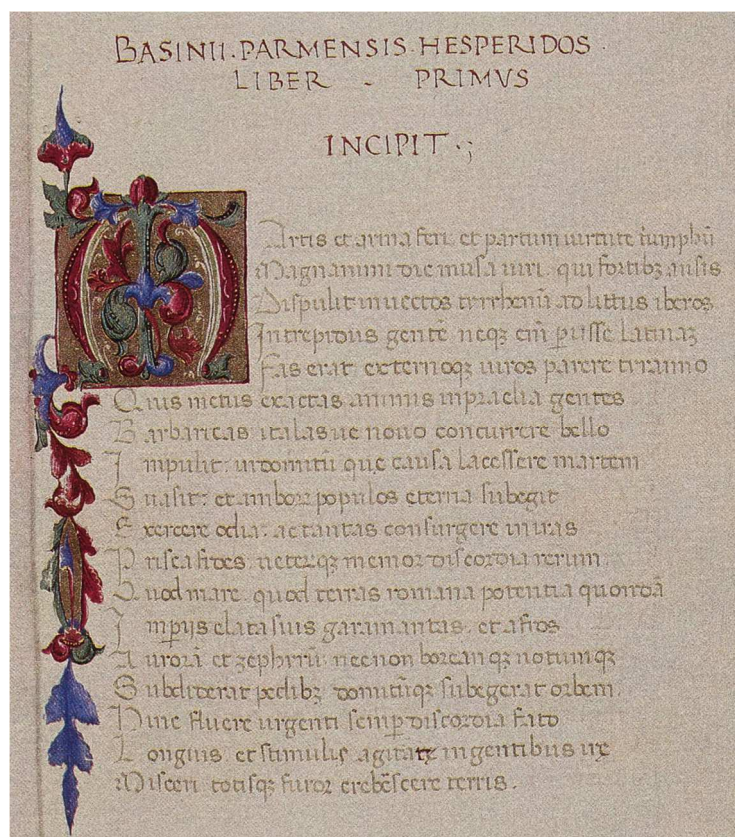 BASINII·PARMENSIS·HESPERIDOS·
LIBER - PRIMVS
INCIPIT·;
MArtis et arma feri et partum uirtute tiumphũ
Magnanimi dic musa uiri qui fortibꝫ ausis
Dispulit inuectos tyrrhenũ ad littus iberos
Intrepidus gentẽ neqꝫ eĩ ꝑisse latinaꝫ
Fas erat externoqꝫ uiros parere tyranno
Quis metus exactas animis inpraelia gentes
Barbaricas italasue nouo concurrere bello
Impulit: ut domitũ quę causa lacessere martem
Suasit: et ambor populos eterna subegit
Exercere odia: ac tantas consurgere iniras
Prisca fides. ueterqꝫ memor discordia rerum
Quod mare. quod terras romana potentia quondã
Imꝑijs elata suis garamantas. et afros
Aurorã et zephyrũ necnon borean qꝫ notumqꝫ
Subdiderat pedibꝫ domitũqꝫ subegerat orbem.
Hinc fluere urgenti semꝑ discordia fato
Longius et stimulis agitatę in gentibus
Misceri totisqꝫ furor crebẽscere terris.